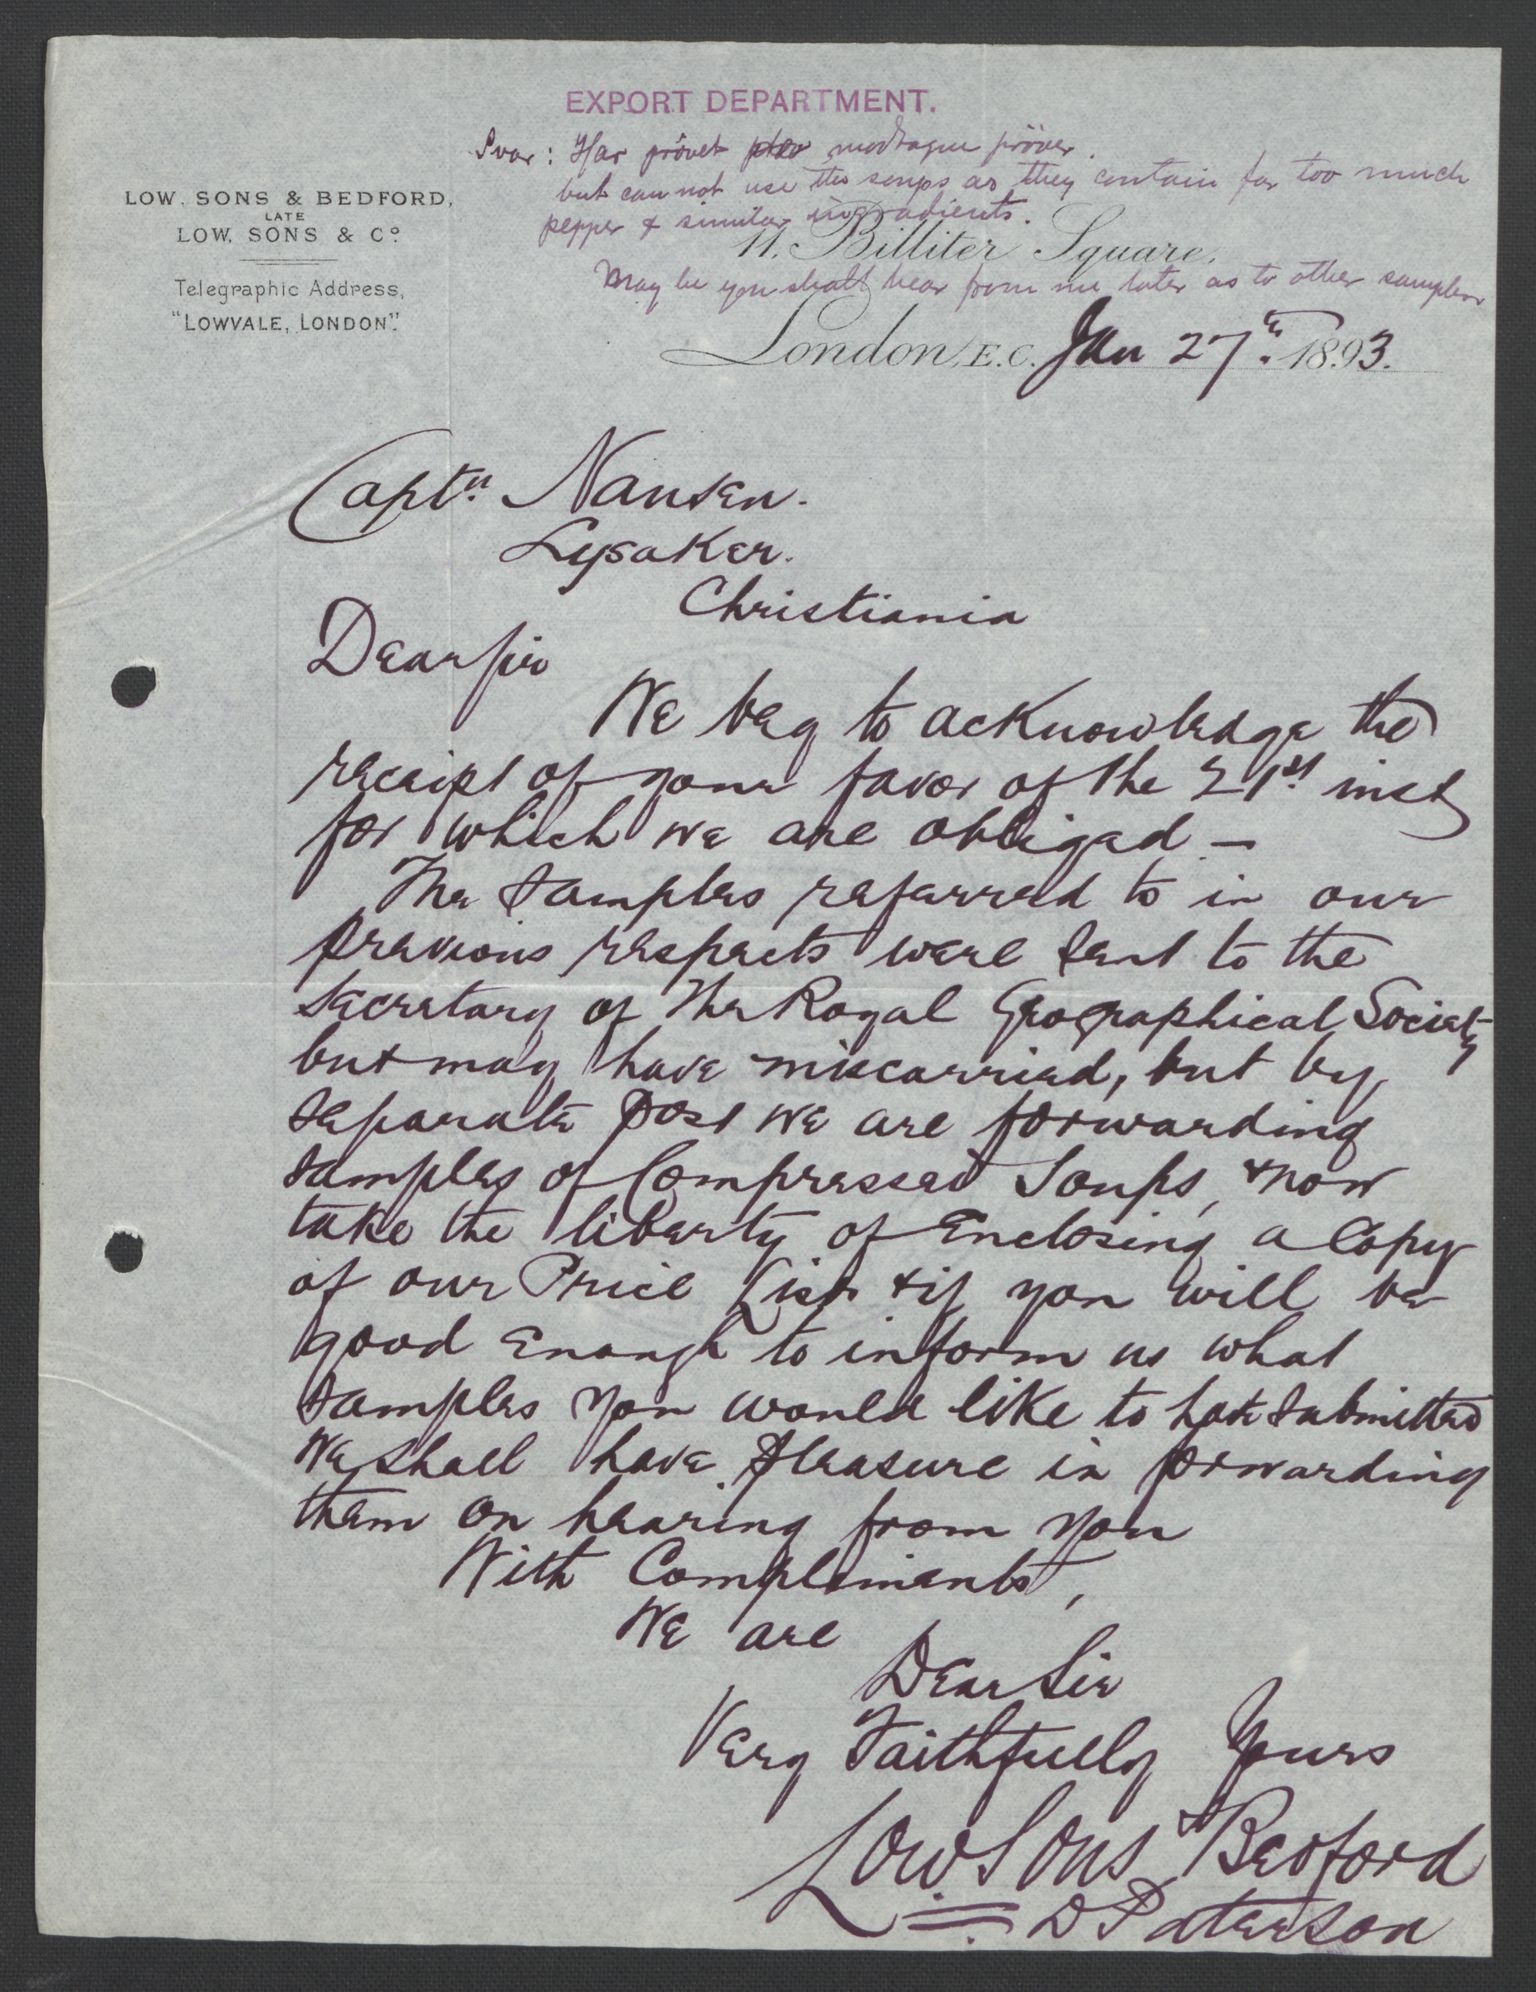 EXPORT DEPARTMENT.
Svar: Har prövet modtagne pröver.
but can not use the soups as they contain far too much
pepper & similar ingradients.
May be you shall hear from me later as to other samples
LOW, SONS & BEDFORD,
LATE
LOW, SONS & Cº
Telegraphic Address,
"LOWVALE, LONDON".
11, Billiter Square,
London, E.C. Jan 27th. 1893.
Captn. Nansen.
Lysaker.
Christiania
Dear Sir
We beg to acknowledge the
receipt of your favor of the 21st. inst
for which we are obliged —
The samples referred to in our
previous respects were sent to the
Secretary of The Royal Geographical Society
but may have miscarried, but by
separate post we are forwarding
samples of Compressed Soups, & now
take the liberty of Enclosing a Copy
of our Price List & if you will be
good Enough to inform us what
samples you would like to have submitted
We shall have pleasure in forwarding
them on hearing from you
With Compliments,
We are
Dear Sir
Very Faithfully Yours
Low Sons & Bedford
D Paterson